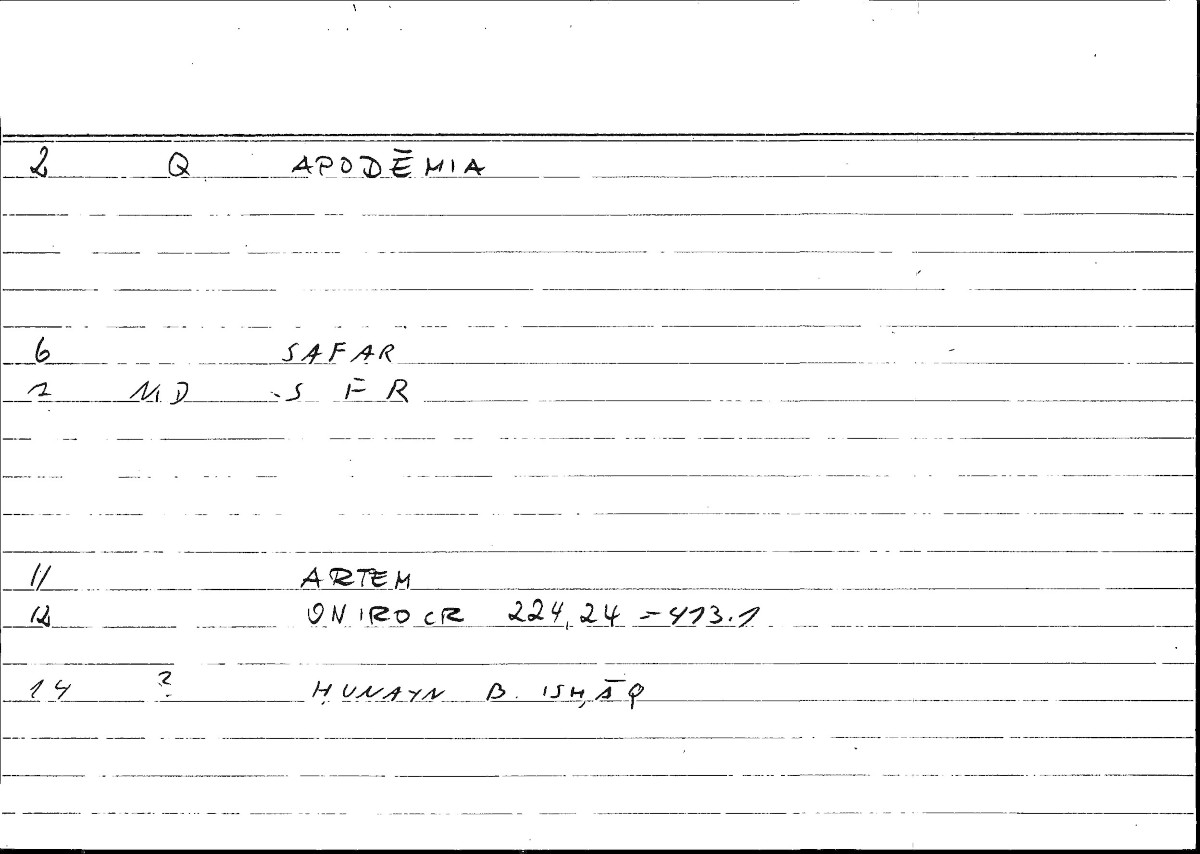 2 Q APODĒMIA
6 SAFAR
7 MD S F R
11 ARTEM
12 ONIROCR 224,24 = 413.1
14 ? ḤUNAYN B. ISḤĀQ